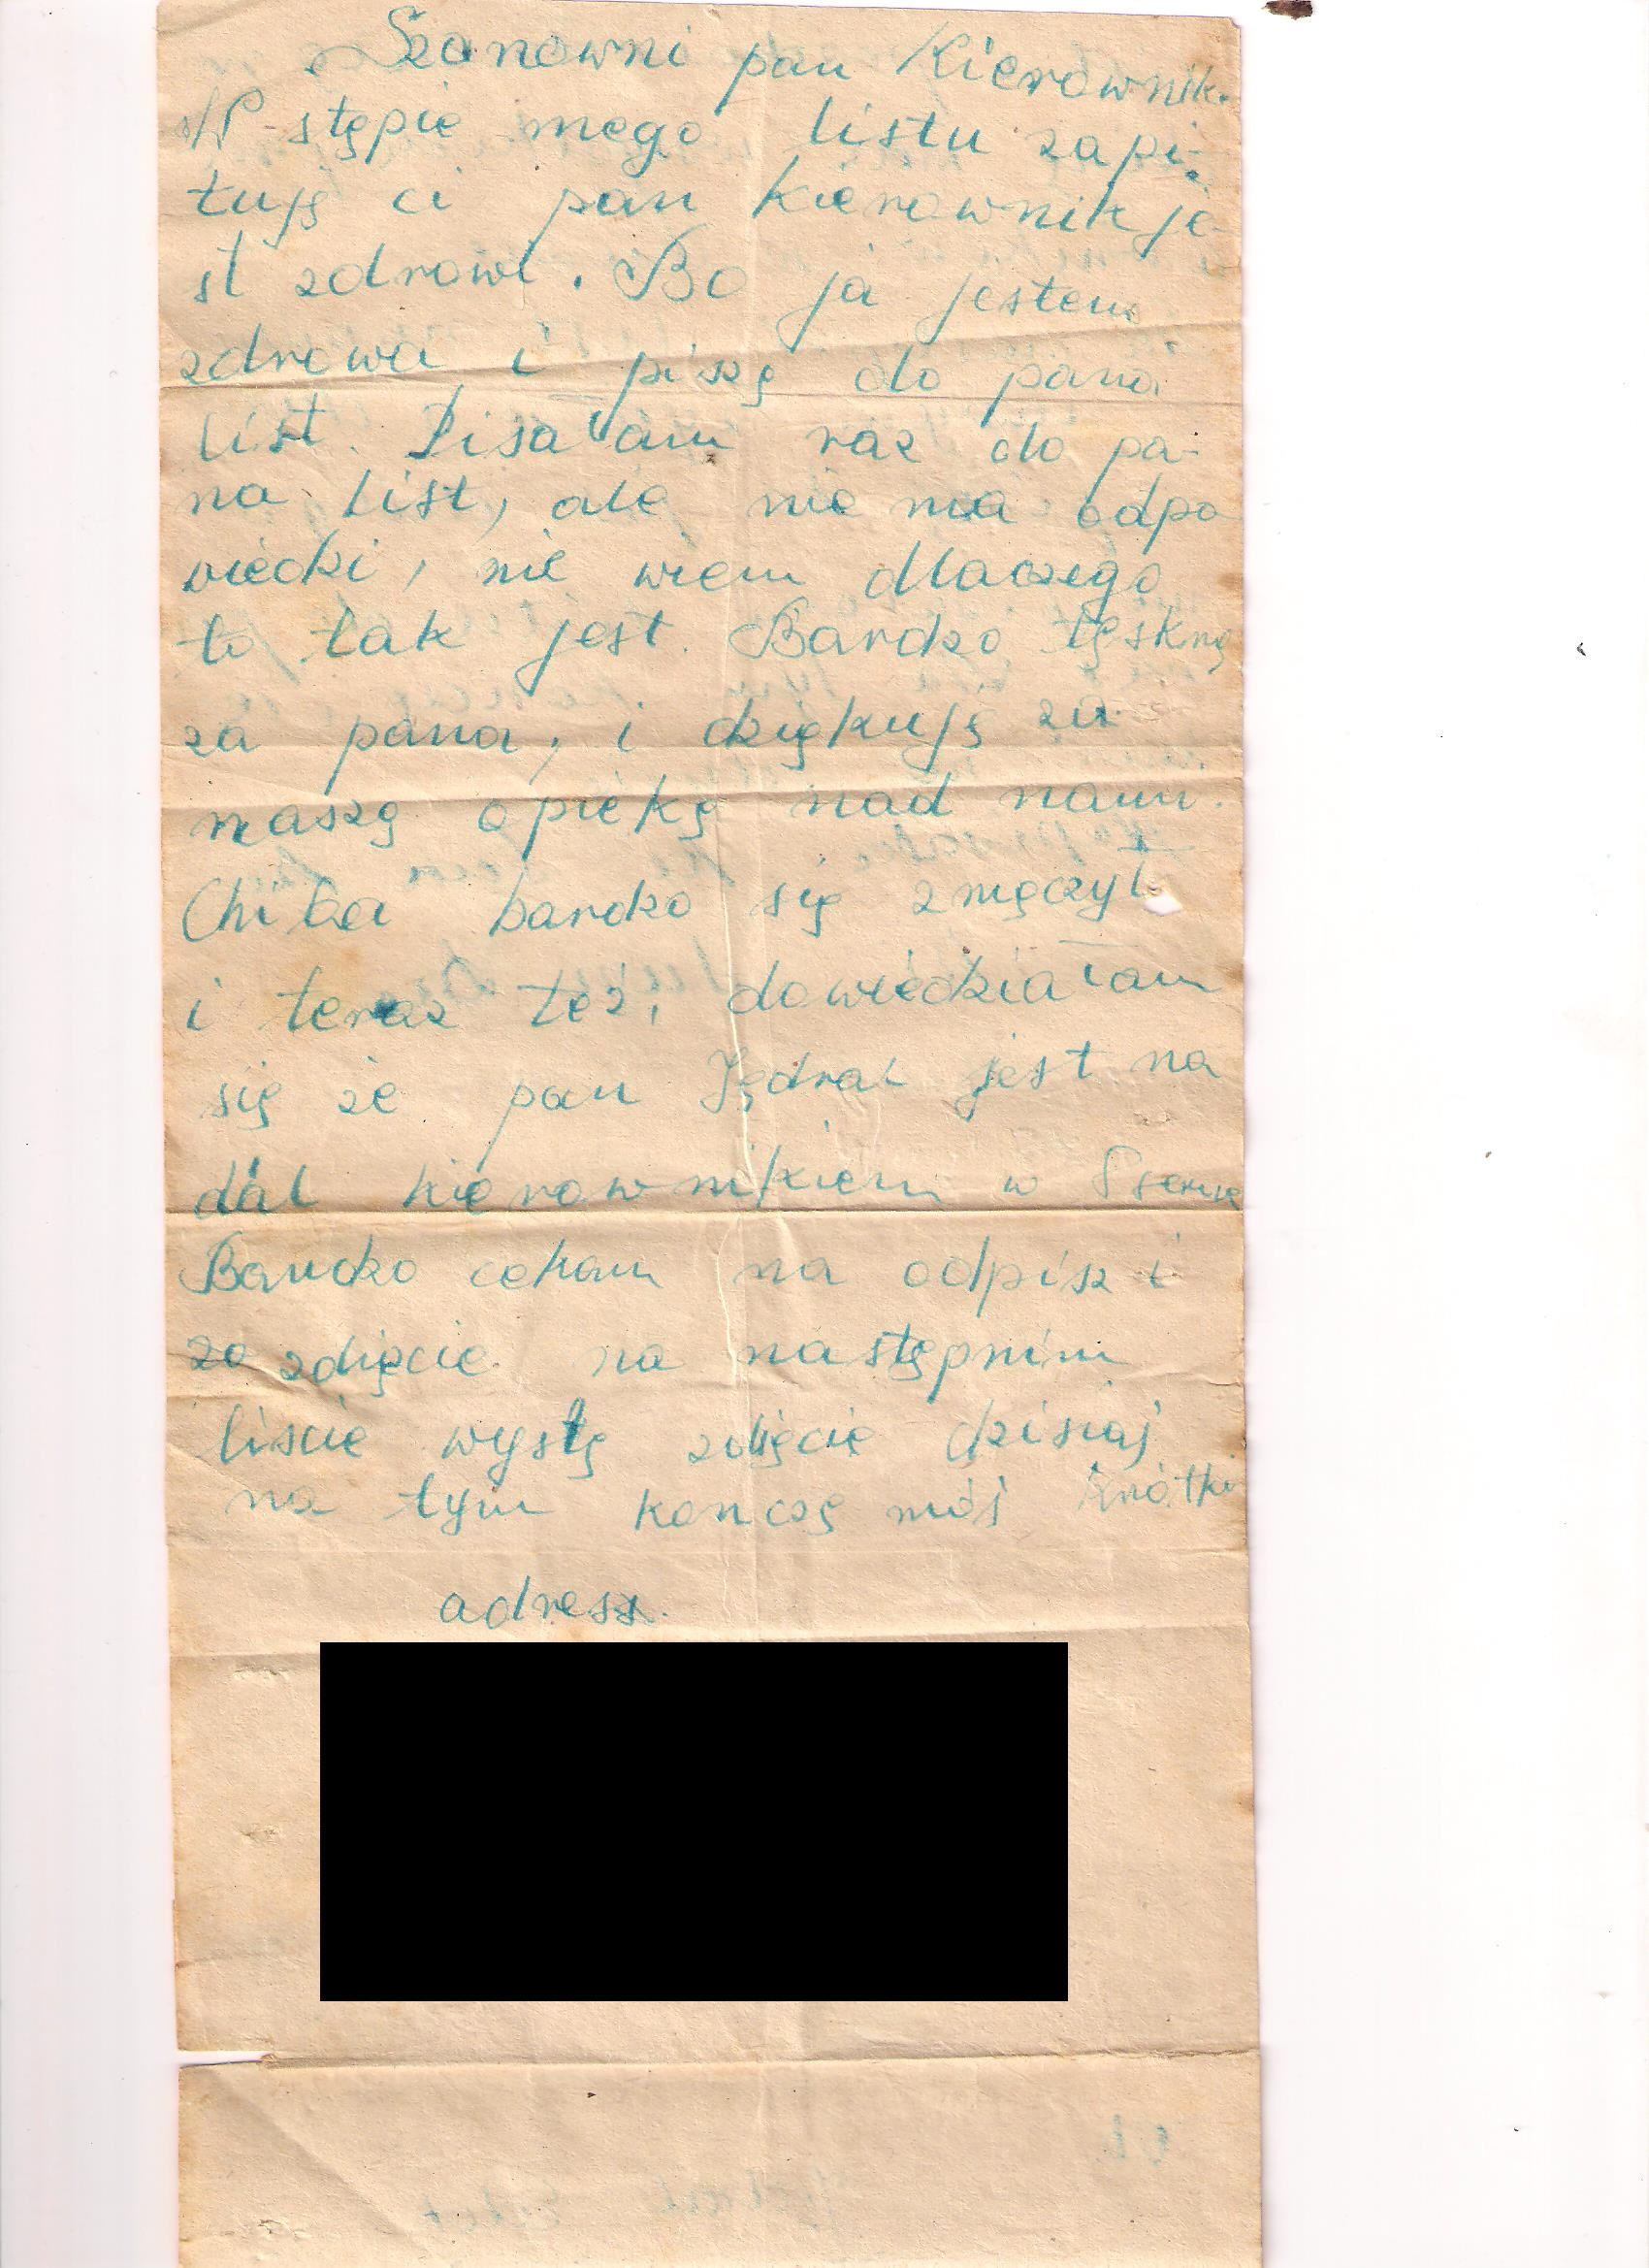 Szanowni pan Kierownik.
W-stępie mego listu zapi-
tuję ci pan kierownik je-
st zdrowi. Bo ja jestem
zdrowa i piszę do pana
list. Pisałam raz do pa-
na list, ale nie ma odpo
wiedzi, nie wiem dlaczego
to tak jest. Bardzo tęsknę
za pana, i dziękuję za
naszę opiekę nad nami.
Chiba bardzo się zmęczył
i teraz też, dowiedziałam
się że pan Jędral jest na
dal kierownikiem w
Bardzo cekam na odpisz i
zo zdięcie na następnim
liscie wysłę zdięcie dzisiaj
na tym konczę mój krótki
adress.